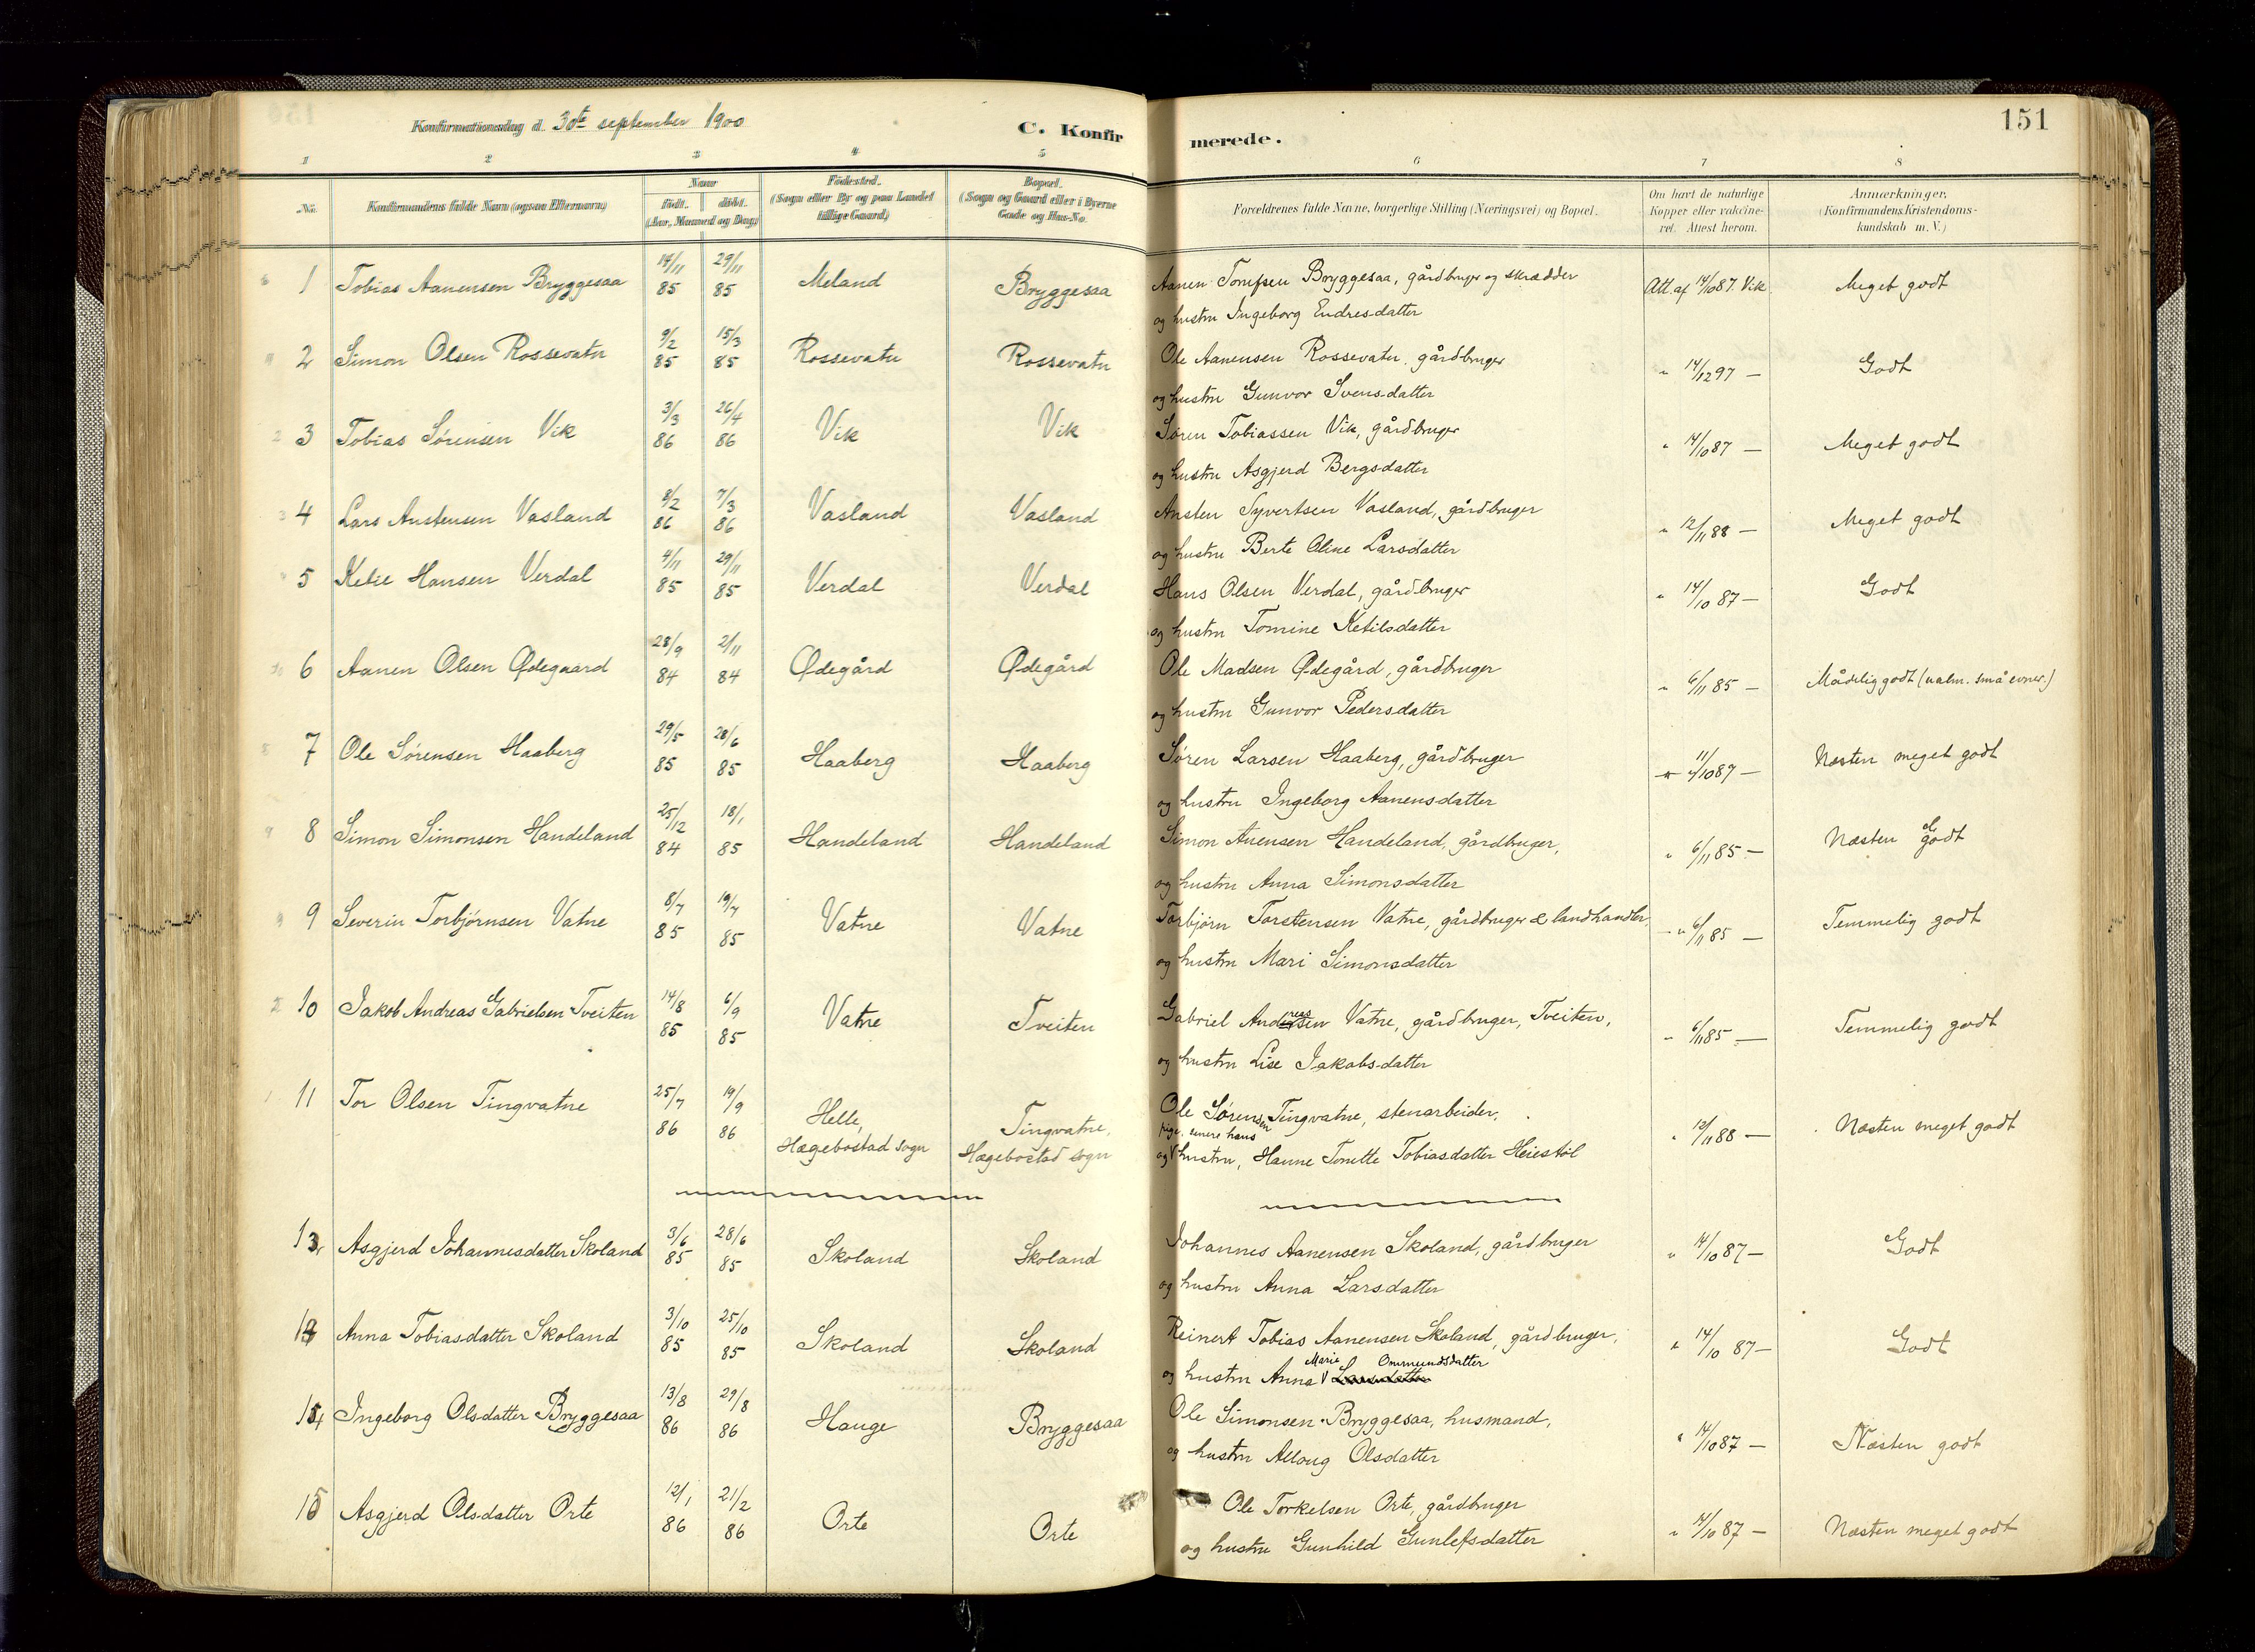 151
Konfirmationsdag d. 30te september 1900
C. Konfirmerede.
1 2 3 4 5 6 7 8
No. Konfirmandens fulde Navn (ogsaa Efternavn) Naar født. døbt. (Aar, Maaned og Dag) Fødested. (Sogn eller By og paa Landet tillige Gaard.) Bopæl. (Sogn og Gaard eller i Byerne Gade og Hus-No. Forældrenes fulde Navne, borgerlige Stilling (Næringsvei) og Bopæl. Om havt de naturlige Kopper eller vakcineret. Attest herom. Anmærkninger. (Konfirmandens Kristendomskundskab m. V.)
1 Tobias Aanensen Bryggesaa 14/11 85 29/11 85 Meland Bryggesaa Aanen Torjusen Bryggesaa, gårdbruger og skrædder Att. af 14/10 87. Vik Meget godt
og hustru Ingeborg Endresdatter
2 Simon Olsen Rossevatn 9/2 85 15/3 85 Rossevatn Rossevatn Ole Aanensen Rossevatn, gårdbruger " 14/12 97 — Godt
og hustru Gunvor Svensdatter
3 Tobias Sørensen Vik 3/3 86 26/4 86 Vik Vik Søren Tobiassen Vik, gårdbruger " 14/10 87 — Meget godt
og hustru Asgjerd Bergsdatter
4 Lars Austensen Vasland 8/2 86 7/3 86 Vasland Vasland Austen Syvertsen Vasland, gårdbruger " 12/11 88 — Meget godt
og hustru Berte Oline Larsdatter
5 Ketil Hansen Verdal 4/11 85 29/11 85 Verdal Verdal Hans Olsen Verdal, gårdbruger " 14/10 87 — Godt
og hustru Tomine Ketilsdatter
6 Aanen Olsen Ødegaard 28/9 84 2/11 84 Ødegård Ødegård Ole Madsen Ødegård, gårdbruger " 6/11 85 — Mådelig godt (ualm. små evner.)
og hustru Gunvor Pedersdatter
7 Ole Sørensen Haaberg 29/5 85 28/6 85 Haaberg Haaberg Søren Larsen Haaberg, gårdbruger " 11/10 87 — Næsten meget godt
og hustru Ingeborg Aanensdatter
8 Simon Simonsen Handeland 25/12 84 18/1 85 Handeland Handeland Simon Anensen Handeland, gårdbruger, " 6/11 85 — Næsten Godt
og hustru Anna Simonsdatter
9 Severin Torbjørnsen Vatne 8/7 85 19/7 85 Vatne Vatne Torbjørn Torstensen Vatne, gårdbruger & landhandler, " 6/11 85 — Temmelig godt
og hustru Mari Simonsdatter
10 Jakob Andreas Gabrielsen Tveiten 14/8 85 6/9 85 Vatne Tveiten Gabriel Andreassen Vatne, gårdbruger, Tveiten, " 6/11 85 — Temmelig godt
og hustru Lise Jakobsdatter
11 Tor Olsen Tingvatne 25/7 86 19/9 86 Helle, Hægebostad sogn Tingvatne, Hægebostad sogn Ole Sørensen Tingvatne, stenarbeider, " 12/11 88 — Næsten meget godt
pige, senere hans
og hustru, Hanne Tonette Tobiasdatter Heiestøl
Asgjerd Johannesdatter Skoland 3/6 85 28/6 85 Skoland Skoland Johannes Aanensen Skoland, gårdbruger " 14/10 87 — Godt
og hustru Anna Larsdatter
Anna Tobiasdatter Skoland 3/10 85 25/10 85 Skoland Skoland Reinert Tobias Aanensen Skoland, gårdbruger, " 14/10 87 — Godt
Marie Ommundsdatter
og hustru Anna Larsdatter
Ingeborg Olsdatter Bryggesaa 13/8 86 29/8 86 Hauge Bryggesaa Ole Simonsen Bryggesaa, husmand, " 14/10 87 — Næsten godt
og hustru Allaug Olsdatter
15 Asgjerd Olsdatter Orte 12/1 86 21/2 86 Orte Orte Ole Torkelsen Orte, gårdbruger " 14/10 87 — Næsten meget godt
og hustru Gunhild Gunlefsdatter